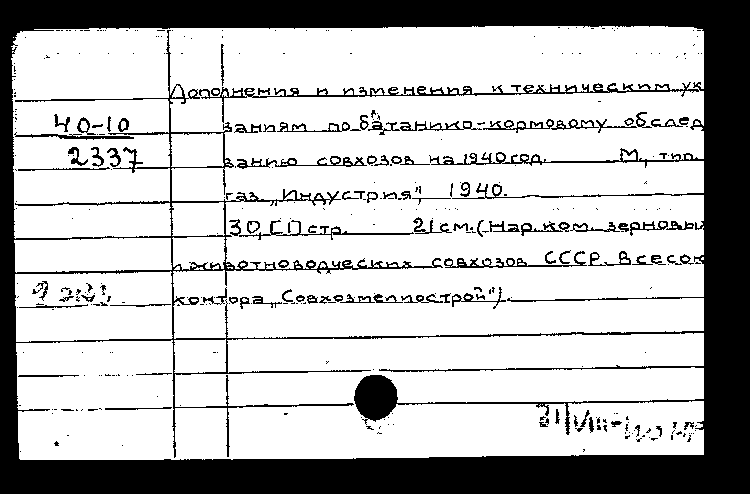 Дополнения и изменения к техническим ук
40-10
заниям по батанико-кормовому обслед
2337
занию совхозов на 1940 год. М., тип.
газ. „Индустрия", 1940.
30, [1] стр. 21 см. (Нар. ком. зерновых
и животноводческих совхозов СССР. Всесою
2 экз.
контора „Совхозмелиострой").
31/VIII-